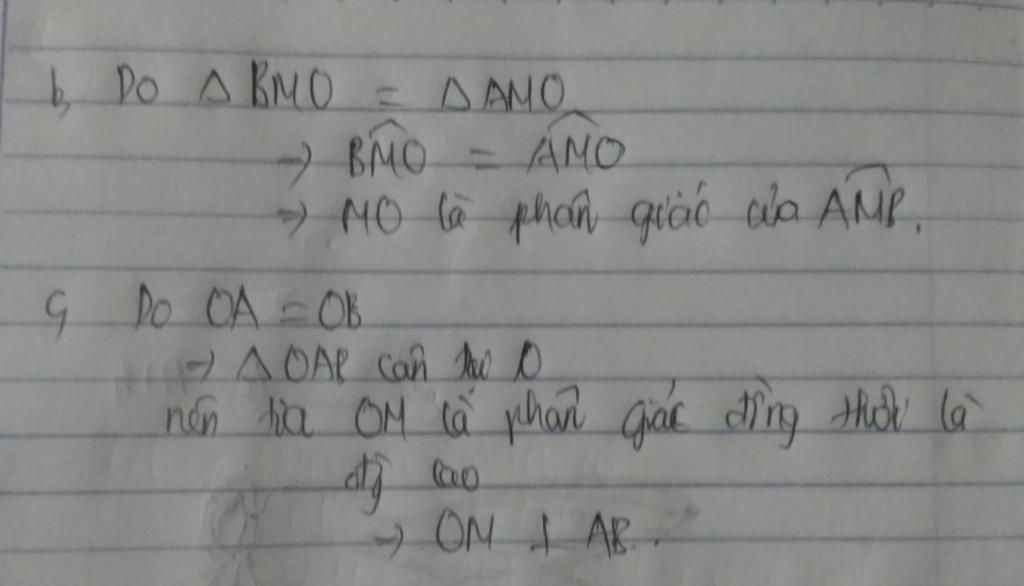 b, Do Δ BMO = Δ AMO
→ BMO = AMO
→ MO là phân giác của AMB.
c, Do OA = OB
→ Δ OAB cân tại O
nên tia OM là phân giác đồng thời là
đg cao
→ OM ⊥ AB.